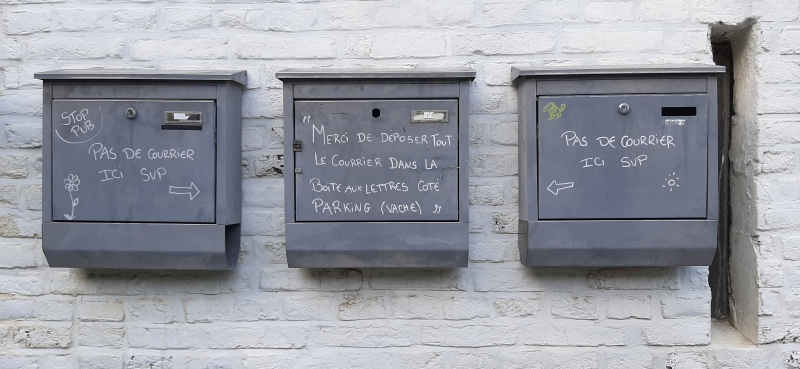 STOP
PUB
PAS DE COURRIER
ICI SVP
" MERCI DE DEPOSER TOUT
LE COURRIER DANS LA
BOITE AUX LETTRES COTÉ
PARKING (VACHE) "
PAS DE COURRIER
ICI SVP